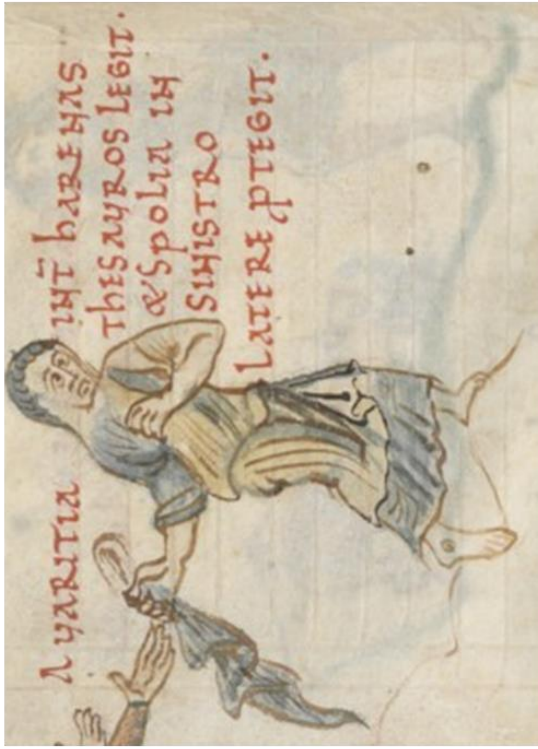 AVARITIA INT̄ hARENAS
ThESAVROS LEGIT·
& SPOLIA IN
SINISTRO
LATERE ꝓTEGIT·